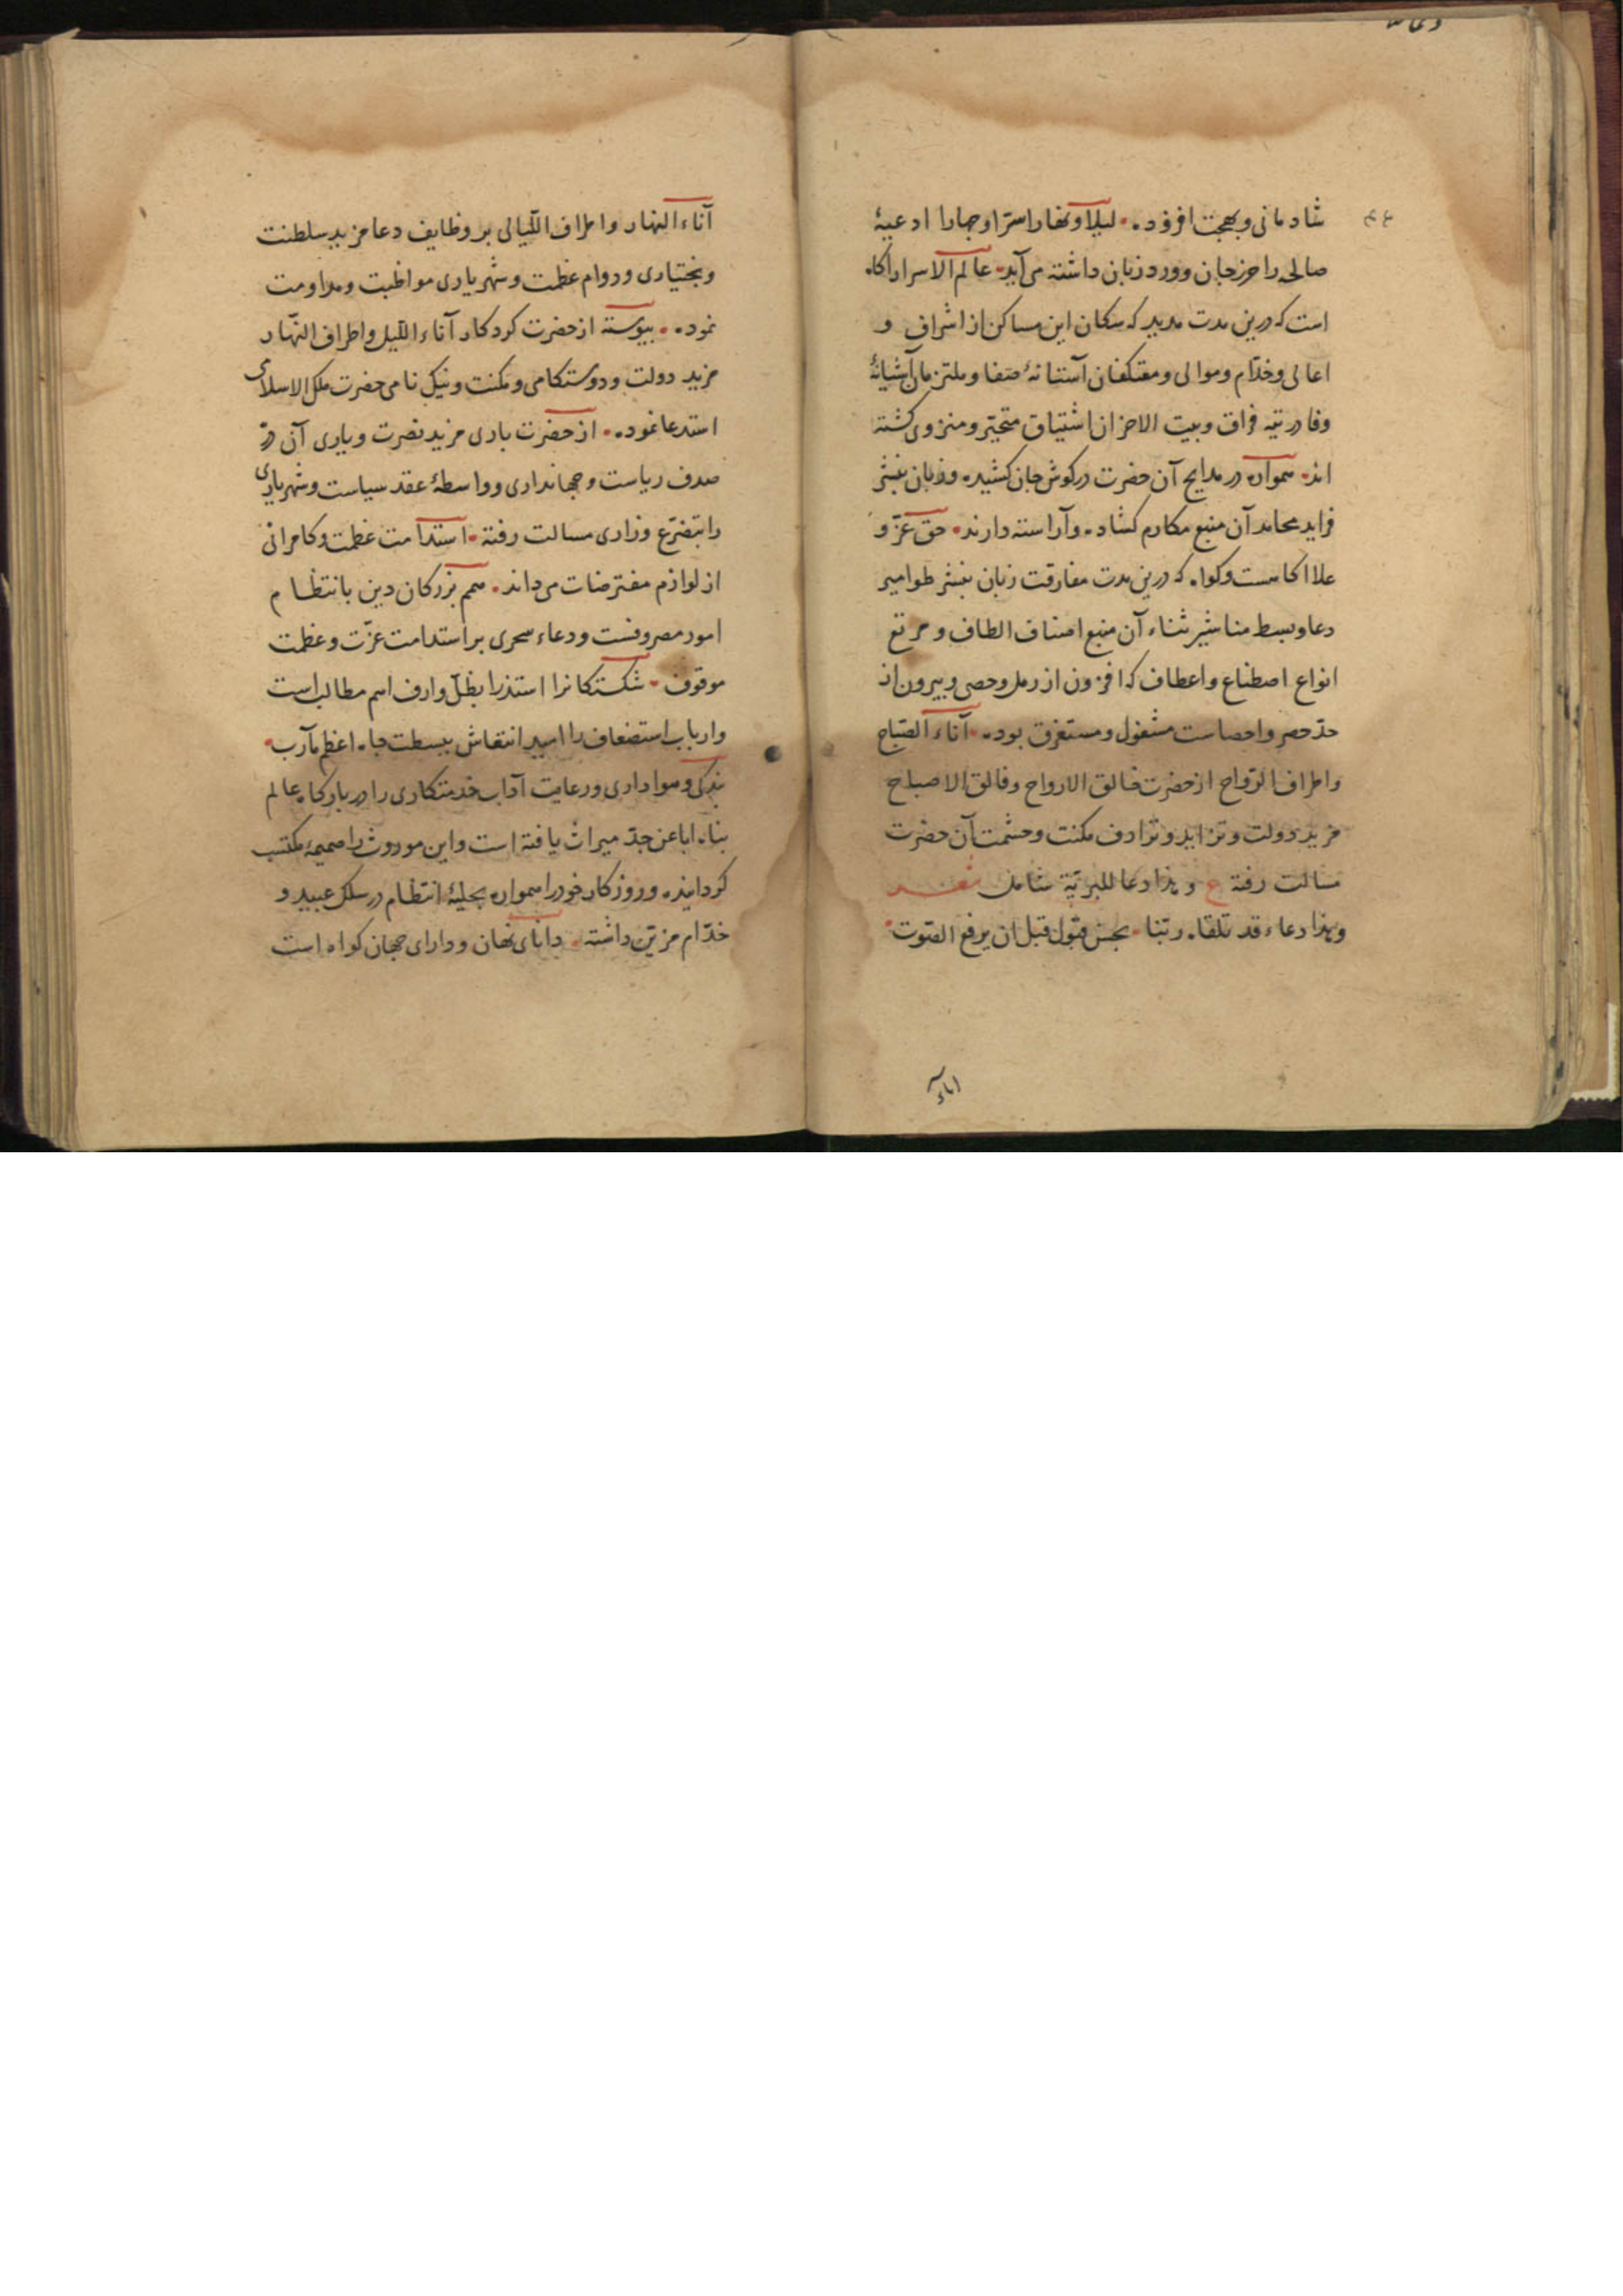 شادمانی و بهجت افزوده لیلا و نهارا سرّا و جهارا ادعیهٔ
صالحه را حرز جان و ورد زبان داشته می آید عالم الاسرار اکاه
است که درین مدت مدید که سکان این مساکن از اشراف و
اعالی و خدّام و موالی و معتکفان آستانهٔ صفا و ملتزمان آشیانهٔ
وفا در تیه فراق و بیت الاحزان اشتیاق متحیّر و منزوی کشته
اند همواره درر مدایح آن حضرت در کوش جان کشیده و زبان بنشر
فراید محامد آن منبع مکارم کشاده و آراسته دارند حق عزّ و
علا اکاهست و کواه که درین مدت مفارقت زبان بنشر طوامیر
دعا و بسط مناشیر ثناء آن منبع اصناف الطاف و مرتع
انواع اصطناع و اعطاف که افزون از رمل و حصی و بیرون از
حدّ حصر و احصاست مشغول و مستغرق بوده آناء الصّباح
و اطراف الرّواح از حضرت خالق الارواح و فالق الاصباح
مزید دولت و تزاید و ترادف مکنت و حشمت آن حضرت
مسالت رفته ع و هذا دعا للبریّة شامل
و هذا دعاء قد تلقاه ربّنا بحسن قبول قبل ان یرفع الصّوت
آناء
آناء النهار و اطراف اللّیالی بر وظایف دعا مزید سلطنت
و بختیاری و دوام عظمت و شهریاری مواظبت و مداومت
نموده پیوسته از حضرت کردکار آناء اللّیل و اطراف النّهار
مزید دولت و دوستکامی و مکنت و نیک نامی حضرت ملک الاسلامی
استدعا نموده از حضرت باری مزید نصرت و یاری آن درّ
صدف ریاست و جهانداری و واسطهٔ عقد سیاست و شهریاری
را بتضرّع و زاری مسالت رفته استدامت عظمت و کامرانی
از لوازم مفترضات می داند همم بزرکان دین بانتظام
امور مصروفست و دعاء سحری بر استدامت عزّت و عظمت
موقوف شکستکانرا استذرا بظلّ وارف اهم مطالب است
و ارباب استضعاف را امید انتعاش ببسطت جاه اعظم مآرب
بندکی و هواداری و رعایت آداب خدمتکاری را در بارکاه عالم
پناه ابا عن جدّ میراث یافته است و این موروث را ضمیمهٔ مکتسب
کردانیده و روزکار خود را همواره بحلیهٔ انتظام در سلک عبید و
خدّام مزیّن داشته دانای نهان و دارای جهان کواه است